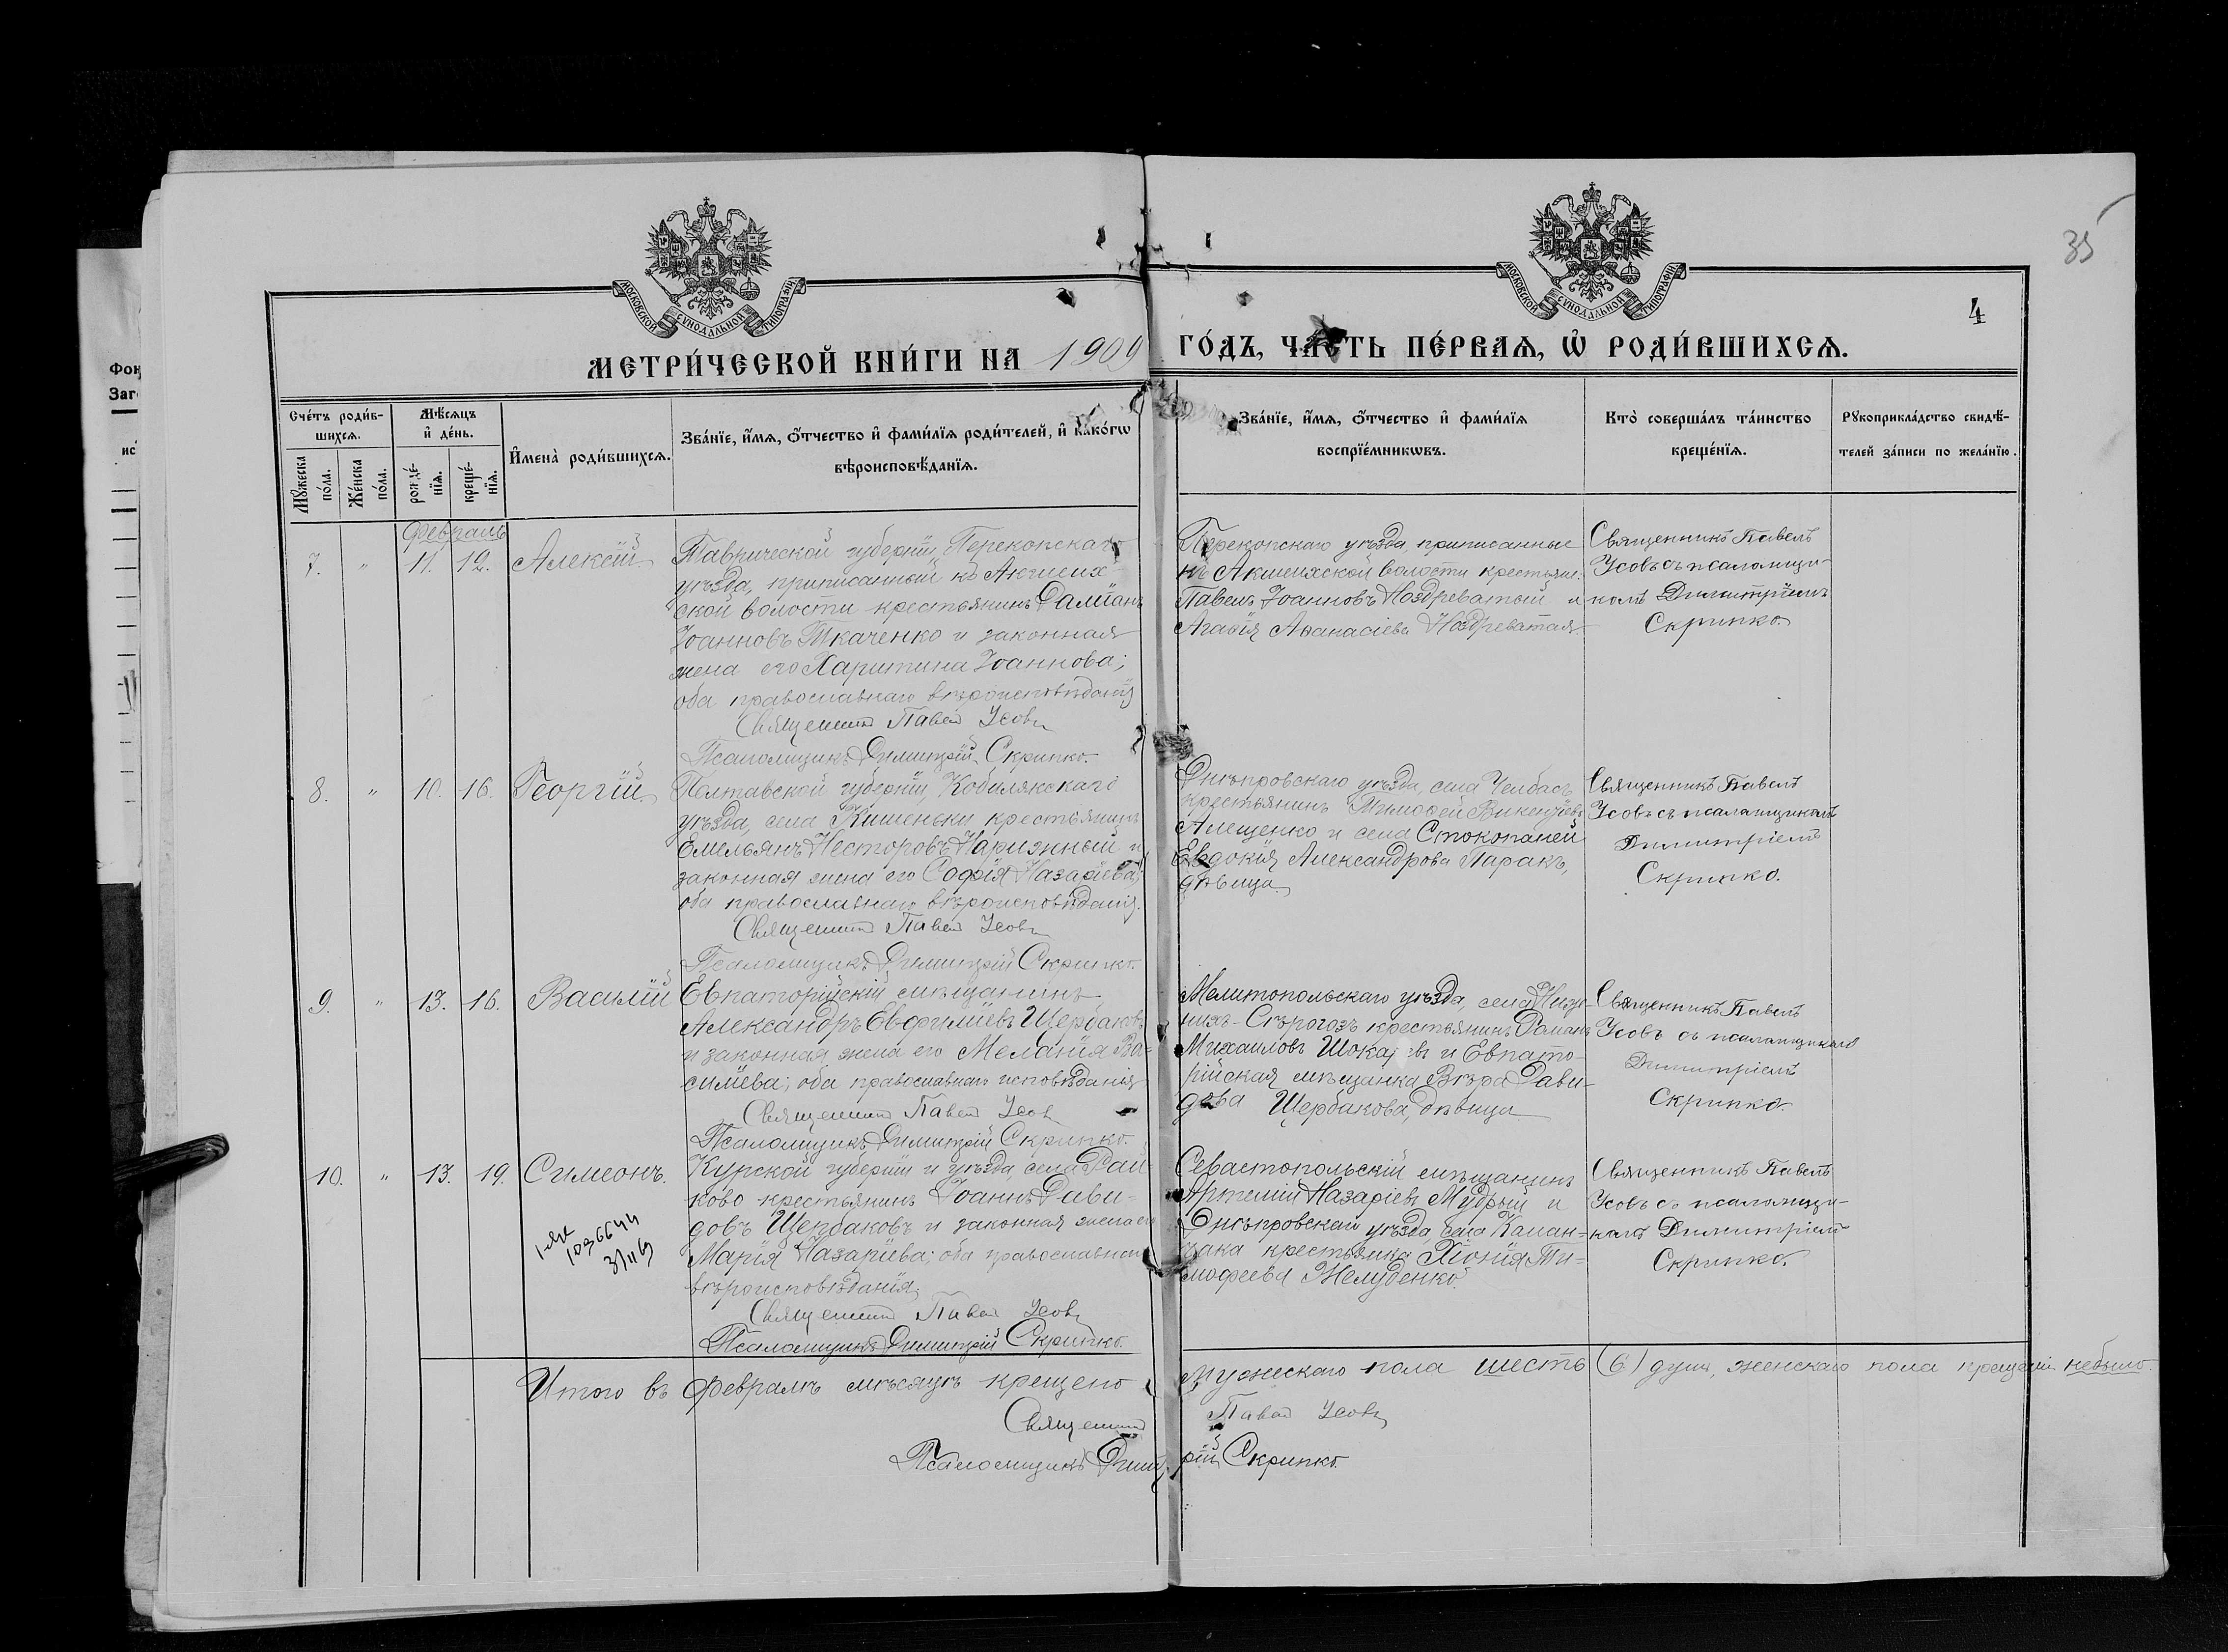 МОСКОВСКОЙ СУНОДАЛЬНОЙ ТИПОГРАФІИ
МОСКОВСКОЙ СУНОДАЛЬНОЙ ТИПОГРАФІИ
35
4
МЕТРИ́ЧЕСКОЙ КНИ́ГИ НА 1909 ГО́ДЪ, ЧА́СТЬ ПЕ́РВАѦ, Ѡ҆ РОДИ́ВШИХСѦ.
Фон
Заг
ис
Сче́тъ роди́в-
шихсѧ.
Мꙋ́жеска по́ла.
Же́нска по́ла.
Мѣ́сѧцъ
и҆ де́нь.
рожде́-
нїѧ.
креще́-
нїѧ.
И҆мена̀ роди́вшихсѧ.
Зва́нїе, и҆́мѧ, ѻ҆́тчество и҆ фами́лїѧ роди́телей, и҆ како́гѡ
вѣроисповѣ́данїѧ.
Зва́нїе, и҆́мѧ, ѻ҆́тчество и҆ фами́лїѧ
воспрїе́мникѡвъ.
Кто̀ соверша́лъ та́инство
креще́нїѧ.
Рꙋкоприкла́дство свидѣ́-
телей за́писи по жела́нїю.
Февраль
7. " 11. 12. Алексій
Таврической губерніи, Перекопскаго
уѣзда, приписанный къ Акшеих-
ской волости крестьянинъ Даміанъ
Іоанновъ Ткаченко и законная
жена его Харитина Іоаннова;
оба православнаго вѣроисповѣданія
Священникъ Павелъ Усовъ
Псаломщикъ Димитрій Скрипко.
Перекопскаго уѣзда, приписанные
къ Акшеихской волости крестьяне:
Павелъ Іоанновъ Ноздреватый и
Агаѳія Аѳанасіева Ноздреватая
Священникъ Павелъ
Усовъ съ псаломщи-
комъ Димитріемъ
Скрипко.
8. " 10. 16. Георгій.
Полтавской губерніи, Кобилякскаго
уѣзда, села Кишеньки крестьянинъ
Емельянъ Несторовъ Нарижный и
законная жена его Софія Назаріева;
оба православнаго вѣроисповѣданія.
Священникъ Павелъ Усовъ
Псаломщикъ Димитрій Скрипко.
Днѣпровскаго уѣзда, села Челбасъ
крестьянинъ Тимоѳей Викентіевъ
Алещенко и села Стокопаней
Евдокія Александрова Паракъ,
дѣвица.
Священникъ Павелъ
Усовъ съ псаломщикомъ
Димитріемъ
Скрипко.
9. " 13. 16. Василій
Евпаторійскій мѣщанинъ
Александръ Евфиміевъ Щербаковъ
и законная жена его Меланія Ва-
силіева; оба православнаго исповѣданія
Священникъ Павелъ Усовъ
Псаломщикъ Димитрій Скрипко.
Мелитопольскаго уѣзда, села Ниж-
нихъ-Сѣрогозъ крестьянинъ Романъ
Михаиловъ и Евпато-
рійская мѣщанка Вѣра Дави-
дова Щербакова, дѣвица
Священникъ Павелъ
Усовъ съ псаломщикомъ
Димитріемъ
Скрипко.
10. " 13. 19. Симеонъ.
Курской губерніи и уѣзда, села Рай-
ково крестьянинъ Іоаннъ Дави-
довъ Щербаковъ и законная жена его
Марія Назаріева; оба православнаго
вѣроисповѣданія.
Священникъ Павелъ Усовъ
Псаломщикъ Димитрій Скрипко.
Севастопольскій мѣщанинъ
Артемій Назаріевъ Мудрый и
Днѣпровскаго уѣзда, села Калан-
чака крестьянка Хіонія Ти-
мофеева Желуденко.
Священникъ Павелъ
Усовъ съ псаломщи-
комъ Димитріемъ
Скрипко.
Итого въ февралѣ мѣсяцѣ крещено мужескаго пола шесть (6) душъ, женскаго пола крещеній небыло.
Священникъ Павелъ Усовъ
Псаломщикъ Димитрій Скрипко.